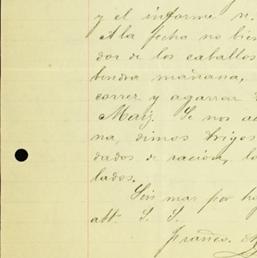 y el informe n.
A la fecha no bien
dor de los caballos
bendra mañana,
correr y agarrar
Maiz. Se nos ac
na, dimos trigos
dados de racion, lo
lados.
Sin mas por ho
att. S. S.
Franco.